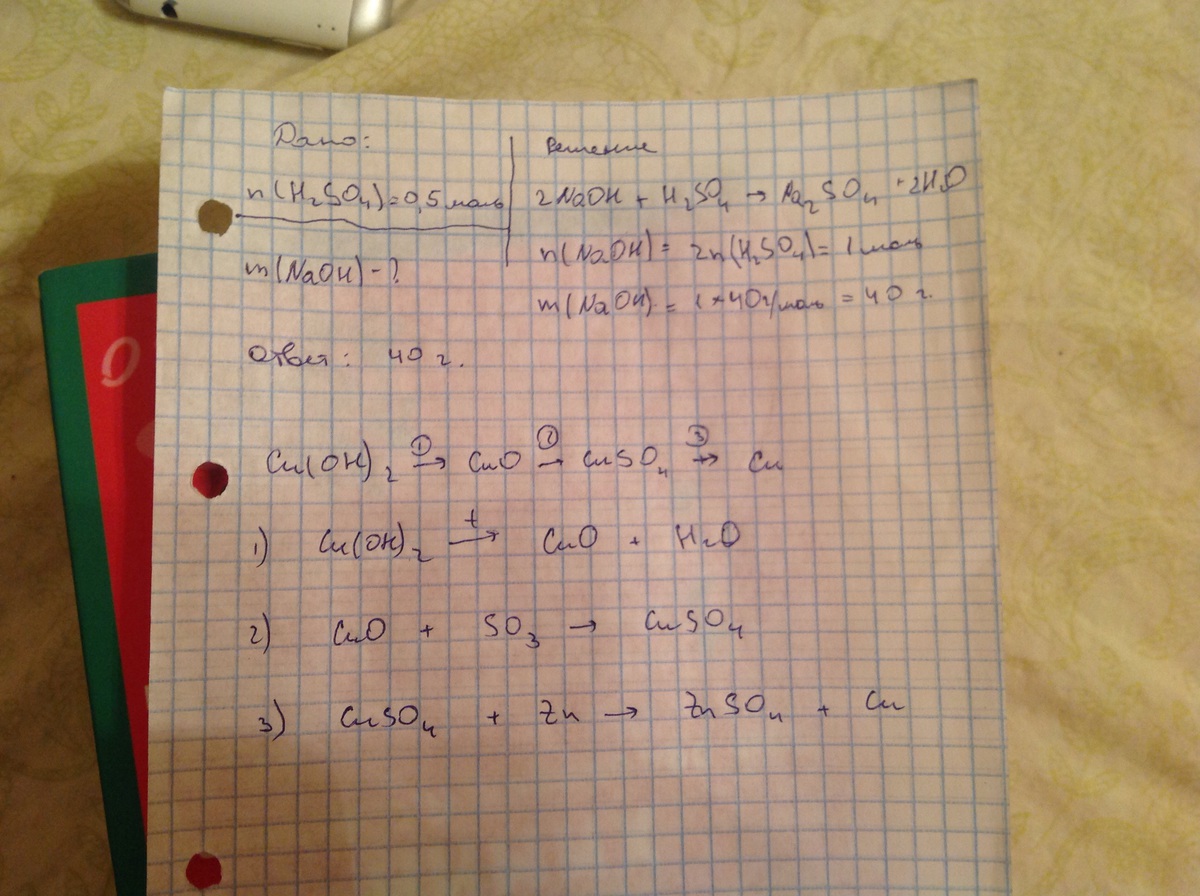 Дано:
n(H₂SO₄)=0,5 моль
m(NaOH)-?
Решение
2NaOH + H₂SO₄ → Na₂SO₄ + 2H₂O
n(NaOH)= 2n(H₂SO₄)= 1 моль
m(NaOH) = 1*40г/моль = 40 г.
Ответ: 40 г.
Cu(OH)₂ ①→ CuO ②→ CuSO₄ ③→ Cu
1) Cu(OH)₂ t→ CuO + H₂O
2) CuO + SO₃ → CuSO₄
3) CuSO₄ + Zn → ZnSO₄ + Cu